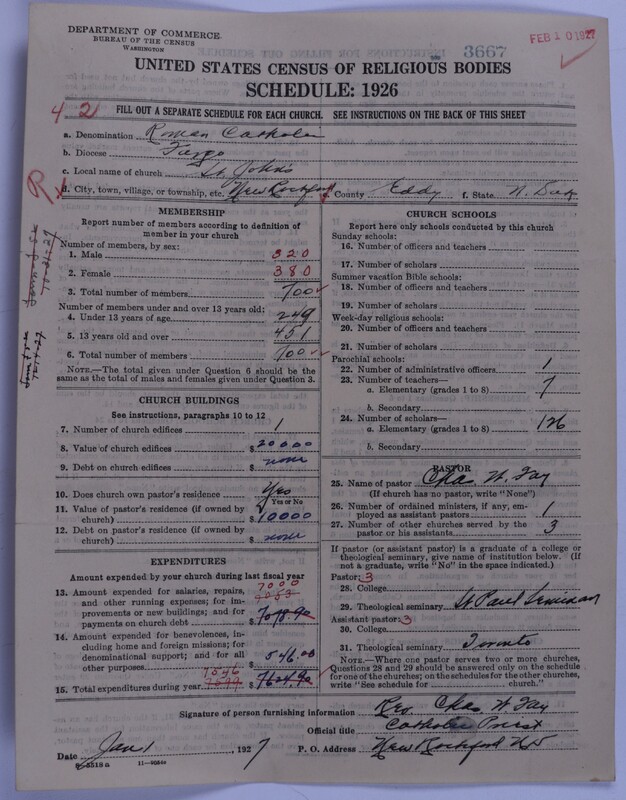 DEPARTMENT OF COMMERCE
BUREAU OF THE CENSUS
WASHINGTON
3667
FEB 10 1927
UNITED STATES CENSUS OF RELIGIOUS BODIES
SCHEDULE: 1926
42
FILL OUT A SEPARATE SCHEDULE FOR EACH CHURCH. SEE INSTRUCTIONS ON THE BACK OF THIS SHEET
a. Denomination Roman Catholic
b. Diocese Fargo
c. Local name of church St. John's
d. City, town, village, or township, etc. New Rockford e. County Eddy f. State N. Dak
MEMBERSHIP
Report number of members according to definition of member in your church
Number of members, by sex:
1. Male 320
2. Female 380
3. Total number of members 700
Number of members under and over 13 years old:
4. Under 13 years of age 249
5. 13 years old and over 451
6. Total number of members 700
NOTE.—The total given under Question 6 should be the same as the total of males and females given under Question 3.
CHURCH BUILDINGS
See instructions, paragraphs 10 to 12
7. Number of church edifices 1
8. Value of church edifices $20000
9. Debt on church edifices $ none
10. Does church own pastor's residence Yes
Yes or No
11. Value of pastor's residence (if owned by church) $10000
12. Debt on pastor's residence (if owned by church) $ none
EXPENDITURES
Amount expended by your church during last fiscal year
13. Amount expended for salaries, repairs, and other running expenses; for improvements or new buildings; and for payments on church debt $7078.90
14. Amount expended for benevolences, including home and foreign missions; for denominational support; and for all other purposes $546.00
15. Total expenditures during year $7624.90
CHURCH SCHOOLS
Report here only schools conducted by this church
Sunday schools:
16. Number of officers and teachers
17. Number of scholars
Summer vacation Bible schools:
18. Number of officers and teachers
19. Number of scholars
Week-day religious schools:
20. Number of officers and teachers
21. Number of scholars
Parochial schools:
22. Number of administrative officers 1
23. Number of teachers—
a. Elementary (grades 1 to 8) 7
b. Secondary
24. Number of scholars—
a. Elementary (grades 1 to 8) 126
b. Secondary
PASTOR
25. Name of pastor Chas W. Fay
(If church has no pastor, write "None")
26. Number of ordained ministers, if any, employed as assistant pastors 1
27. Number of other churches served by the pastor or his assistants 3
If pastor (or assistant pastor) is a graduate of a college or theological seminary, give name of institution below. (If not a graduate, write "No" in the space indicated.)
Pastor: 3
28. College
29. Theological seminary St Paul Seminary
Assistant pastor: 3
30. College
31. Theological seminary Toronto
NOTE.—Where one pastor serves two or more churches, Questions 28 and 29 should be answered only on the schedule for one of the churches; on the schedules for the other churches, write "See schedule for church."
Signature of person furnishing information Rev Chas W Fay
Official title Catholic Priest
Date Jan 1 1927 P. O. Address New Rockford ND
8-5518a 11-9084a